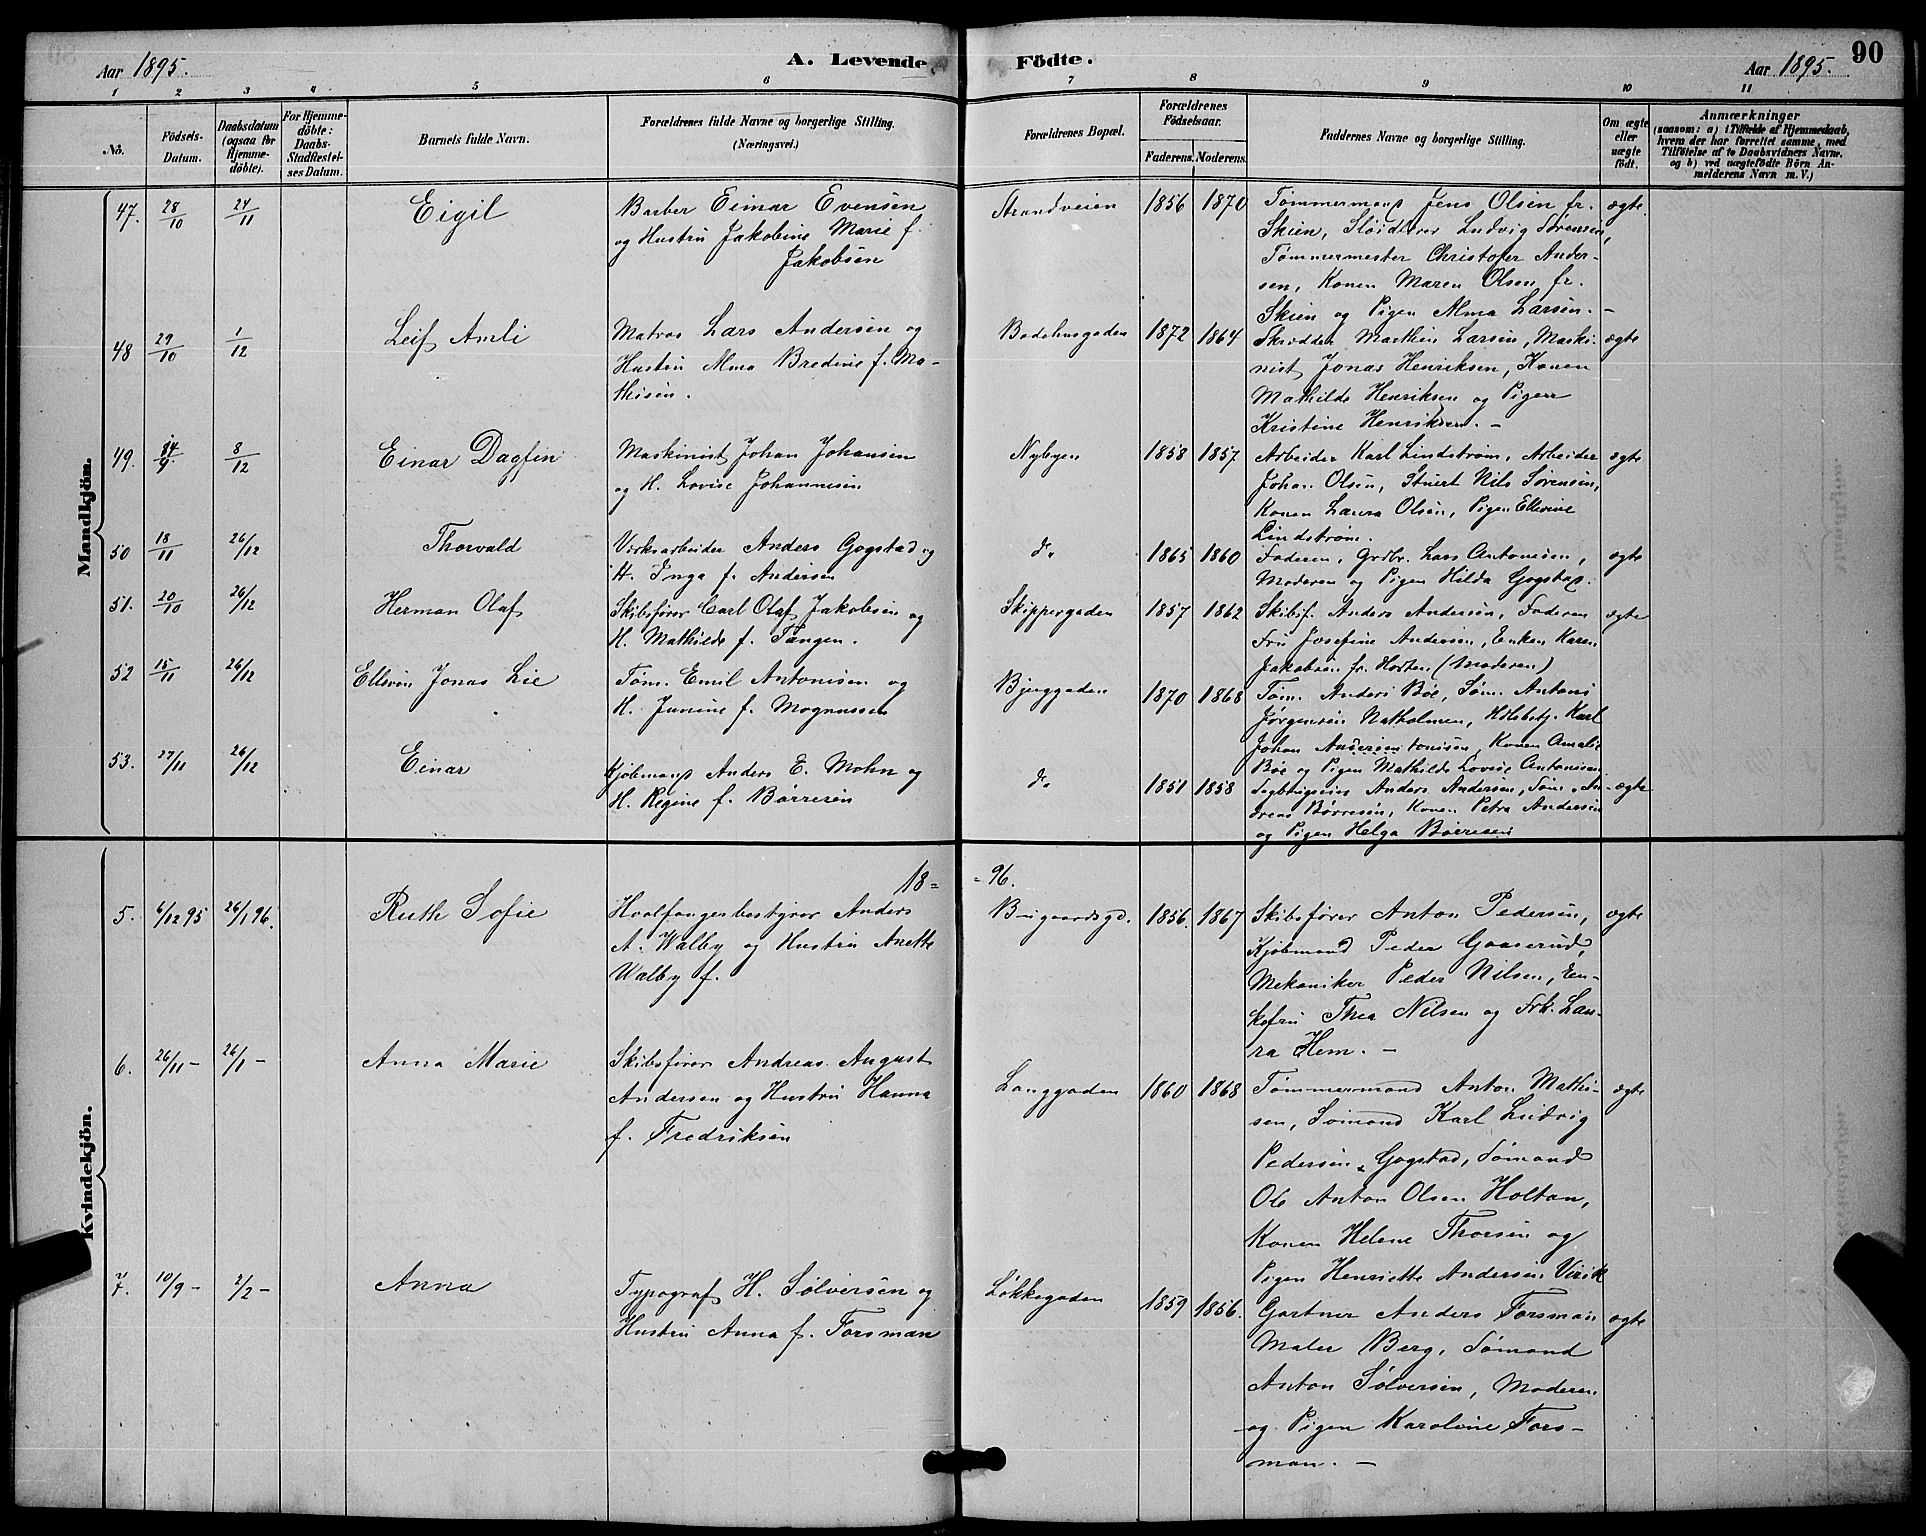 Aar 1895.
A. Levende Födte.
Aar 1895.
90
1 2 3 4 5 6 7 8 9 10 11
No.
Födsels-Datum.
Daabsdatum (ogsaa for Hjemme-döbte).
For Hjemme-döbte: Daabs-Stadfæstel-ses Datum.
Barnets fulde Navn.
Forældrenes fulde Navne og borgerlige Stilling.
(Næringsvei.)
Forældrenes Bopæl.
Forældrenes Födselsaar.
Faderens. Moderens.
Faddernes Navne og borgerlige Stilling.
Om ægte eller uægte födt.
Anmærkninger
(saasom: a) i Tilfælde af Hjemmedaab,
hvem der har forrettet samme, med
Tilföielse af to Daabsvidners Navne,
og b) ved uægtefödte Börn An-
melderens Navn m. V.)
Mandkjön.
47. 28/10 24/11 Eigil
Barber Eimar Evensen
og Hustru Jakobine Marie f.
Jakobsen
Strandveien 1856 1870
Tømmermand Jens Olsen fr.
Skien, Sløidlærer Ludvig Sørensen,
Tømmermester Christofer Ander-
sen, Konen Maren Olsen fr.
Skien og Pigen Alma Larsen. –
ægte.
48 29/10 1/12 Leif Amli
Matros Lars Andersen og
Hustru Alma Bredine f. Ma-
thisen.
Badehusgaden 1872 1864
Skrædder Marthin Larsen, Maski-
nist Jonas Henriksen, Konen
Mathilde Henriksen og Pigen
Kristine Henriksen. –
ægte
49. 8/12 Einar Dagfin
Maskinist Johan Johansen
og H. Lovise Johannesen
Nybyen 1858 1857
Arbeider Karl Lindstrøm, Arbeider
Johan Olsen, Stuert Nils Sørensen,
Konen Laura Olsen, Pigen Ellevine
Lindstrøm.
ægte
50 18/11 26/12 Thorvald
Værksarbeider Anders Gogstad og
H. Inga f. Andersen
do 1865 1860
Faderen, Grdbr. Lars Antonisen,
Moderen og Pigen Hilda Gogstad.
ægte
51. 20/10 26/12 Herman Olaf
Skibsfører Carl Olaf Jakobsen og
H. Mathilde f. Tangen.
Skippergaden 1857 1862
Skibsf. Anders Andersen, Faderen
Fru Josefine Andersen, Enken Karen
Jakobsen fr. Horten (Moderen)
ægte
52 15/11 26/12 Ellevin Jonas Lie
Tøm. Emil Antonisen og
H. Junine f. Magnussen
Bjerggaden 1870 1868
Tøm. Anders Bøe, Søm. Antoni
Jørgensen Natholmen, Karl
Johan Antonisen, Konen Amalie
Bøe og Pigen Mathilde Lovise Antonisen
53. 27/11 26/12 Einar
Kjøbmand Anders E. Mohn og
H. Regine f. Børresen
do 1851 1858
Anders Andersen, Tøm. An-
dreas Børresen, Konen Petra Andersen
og Pigen Helga Børresen
ægte
18 = = 96.
Kvindekjön.
5. 6/12 95 26/1 96. Ruth Sofie
Hvalfangerbestyrer Anders
A. Walby og Hustru Anette
Walby f.
Bugaardsgd. 1856. 1867
Skibsfører Anton Pedersen,
Kjøbmand Peder Gaaserud,
Mekaniker Peder Nilsen, En-
kefru Thea Nilsen og Frk. Lau-
ra Hem. –
ægte
6. 26/11 – 26/1 – Anna Marie
Skibsfører Andreas August
Andersen og Hustru Hanna
f. Fredriksen
Langgaden 1860 1868
Tømmermand Anton Mathi-
sen, Sømand Karl Ludvig
Pedersen Gogstad, Sømand
Ole Anton Olsen Holtan,
Konen Helene Thorsen og
Pigen Henriette Andersen Virik
ægte
7. 10/9 – 2/2 – Anna
Typograf H. Sølversen og
Hustru Anna f. Forsman
Løkkegaden 1859 1856.
Gartner Anders Forsman
Maler Berg, Sømand
Anton Sølversen, Moderen
og Pigen Karoline Fors-
man. –
ægte